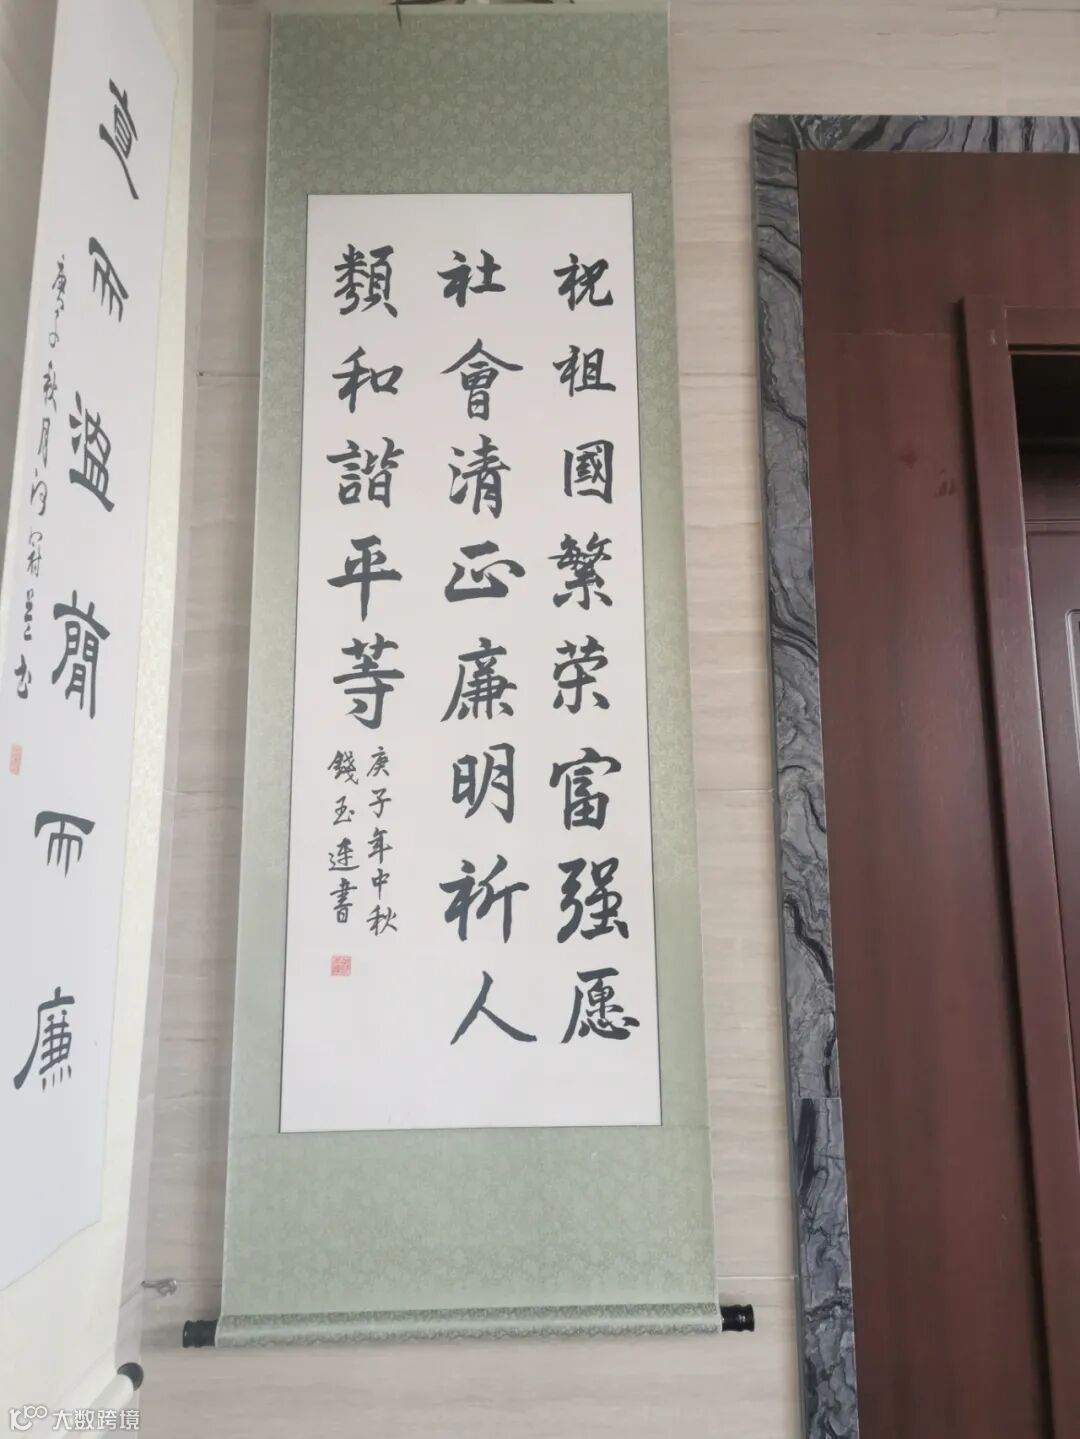 祝祖國繁荣富强愿
社會清正廉明祈人
類和諧平等
庚子年中秋
錢玉連書
直而溫簡而廉
庚子秋月
大数跨境